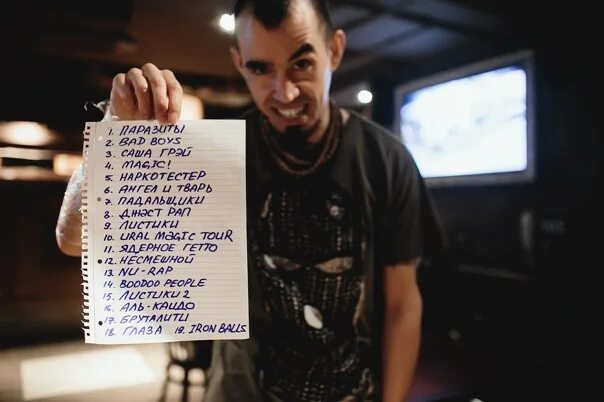 1. ПАРАЗИТЫ
2. BAD BOYS
3. САША ГРЭЙ
4. MAGIC!
5. НАРКОТЕСТЕР
6. АНГЕЛ И ТВАРЬ
7. ПАДАЛЬЩИКИ
8. ДЖАСТ РАП
9. ЛИСТИКИ
10. URAL MAGIC TOUR
11. ЯДЕРНОЕ ГЕТТО
12. НЕСМЕШНОЙ
13. NU-RAP
14. BOODOO PEOPLE
15. ЛИСТИКИ 2
16. АЛЬ-КАИДО
17. БРУТАЛИТИ
18. ГЛАЗА 19. IRON BALLS